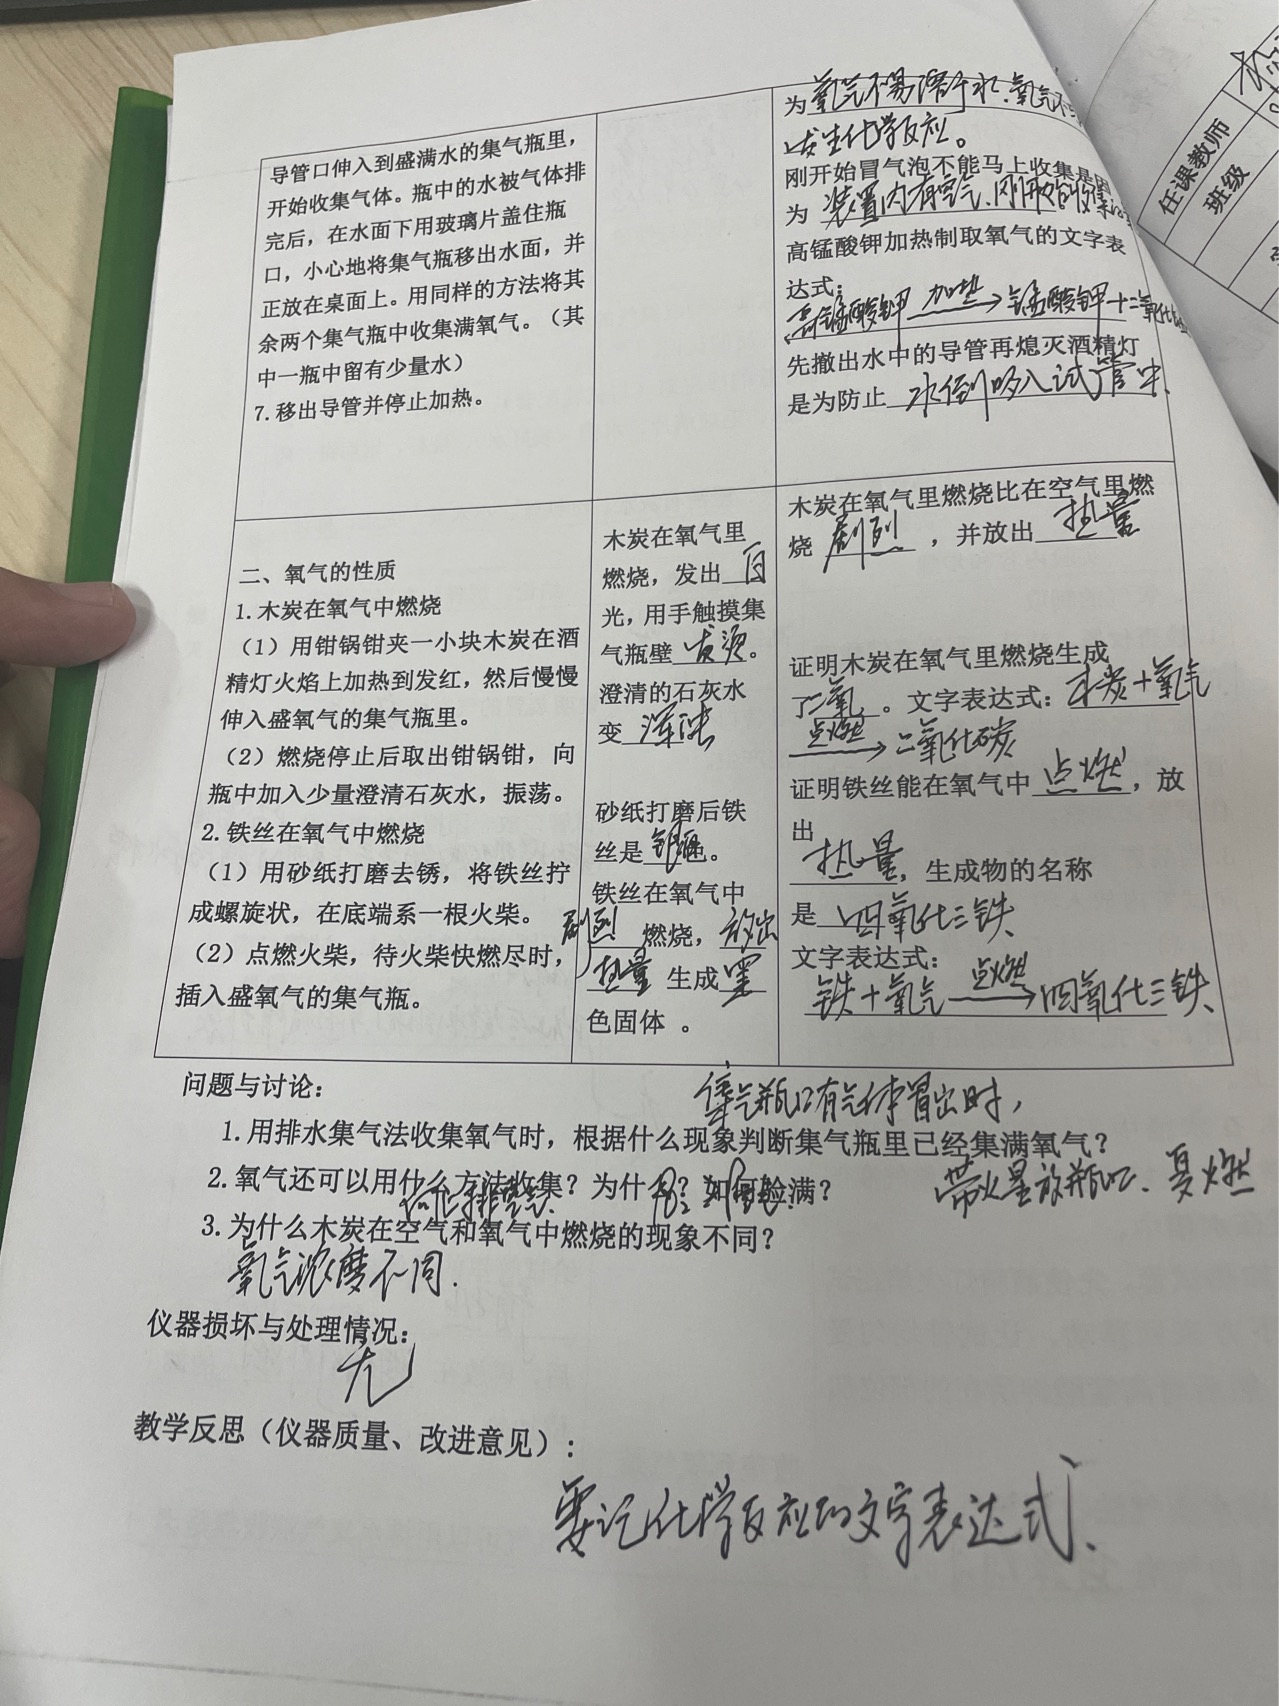 导管口伸入到盛满水的集气瓶里，
开始收集气体。瓶中的水被气体排
完后，在水面下用玻璃片盖住瓶
口，小心地将集气瓶移出水面，并
正放在桌面上。用同样的方法将其
余两个集气瓶中收集满氧气。（其
中一瓶中留有少量水）
7.移出导管并停止加热。
为氧气不易溶于水、氧气不与
发生化学反应。
刚开始冒气泡不能马上收集是因
为装置内有空气、刚开始收集
高锰酸钾加热制取氧气的文字表
达式：
高锰酸钾 加热→ 锰酸钾+二氧化
先撤出水中的导管再熄灭酒精灯
是为防止 水倒吸入试管中、
二、氧气的性质
1.木炭在氧气中燃烧
（1）用钳锅钳夹一小块木炭在酒
精灯火焰上加热到发红，然后慢慢
伸入盛氧气的集气瓶里。
（2）燃烧停止后取出钳锅钳，向
瓶中加入少量澄清石灰水，振荡。
2.铁丝在氧气中燃烧
（1）用砂纸打磨去锈，将铁丝拧
成螺旋状，在底端系一根火柴。
（2）点燃火柴，待火柴快燃尽时，
插入盛氧气的集气瓶。
木炭在氧气里
燃烧，发出 白
光，用手触摸集
气瓶壁 发烫。
澄清的石灰水
变 浑浊
砂纸打磨后铁
丝是 银色。
铁丝在氧气中
剧烈 燃烧，放出
热量 生成 黑
色固体 。
木炭在氧气里燃烧比在空气里燃
烧 剧烈 ，并放出 热量
证明木炭在氧气里燃烧生成
了二氧 。文字表达式：木炭+氧气
点燃→ 二氧化碳
证明铁丝能在氧气中 点燃，放
出
热量，生成物的名称
是 四氧化三铁
文字表达式：
铁+氧气 点燃→ 四氧化三铁、
问题与讨论：
集气瓶口有气体冒出时，
1.用排水集气法收集氧气时，根据什么现象判断集气瓶里已经集满氧气？
2.氧气还可以用什么方法收集？为什么？如何验满？
向上排空气、
带火星放瓶口、复燃
3.为什么木炭在空气和氧气中燃烧的现象不同？
氧气浓度不同.
仪器损坏与处理情况：
无
教学反思（仪器质量、改进意见）：
要记化学反应的文字表达式、
任课教师
班级